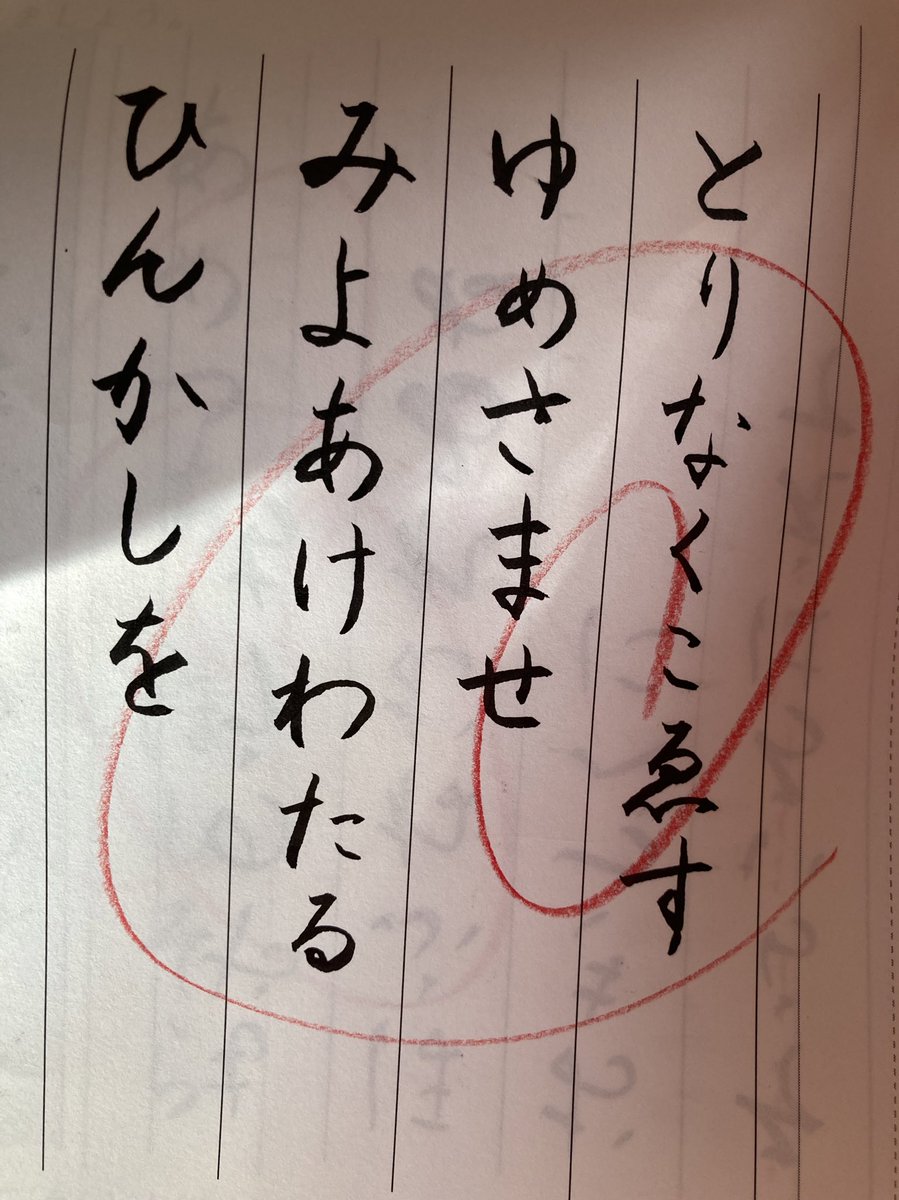 とりなくこゑす
ゆめさませ
みよあけわたる
ひんかしを